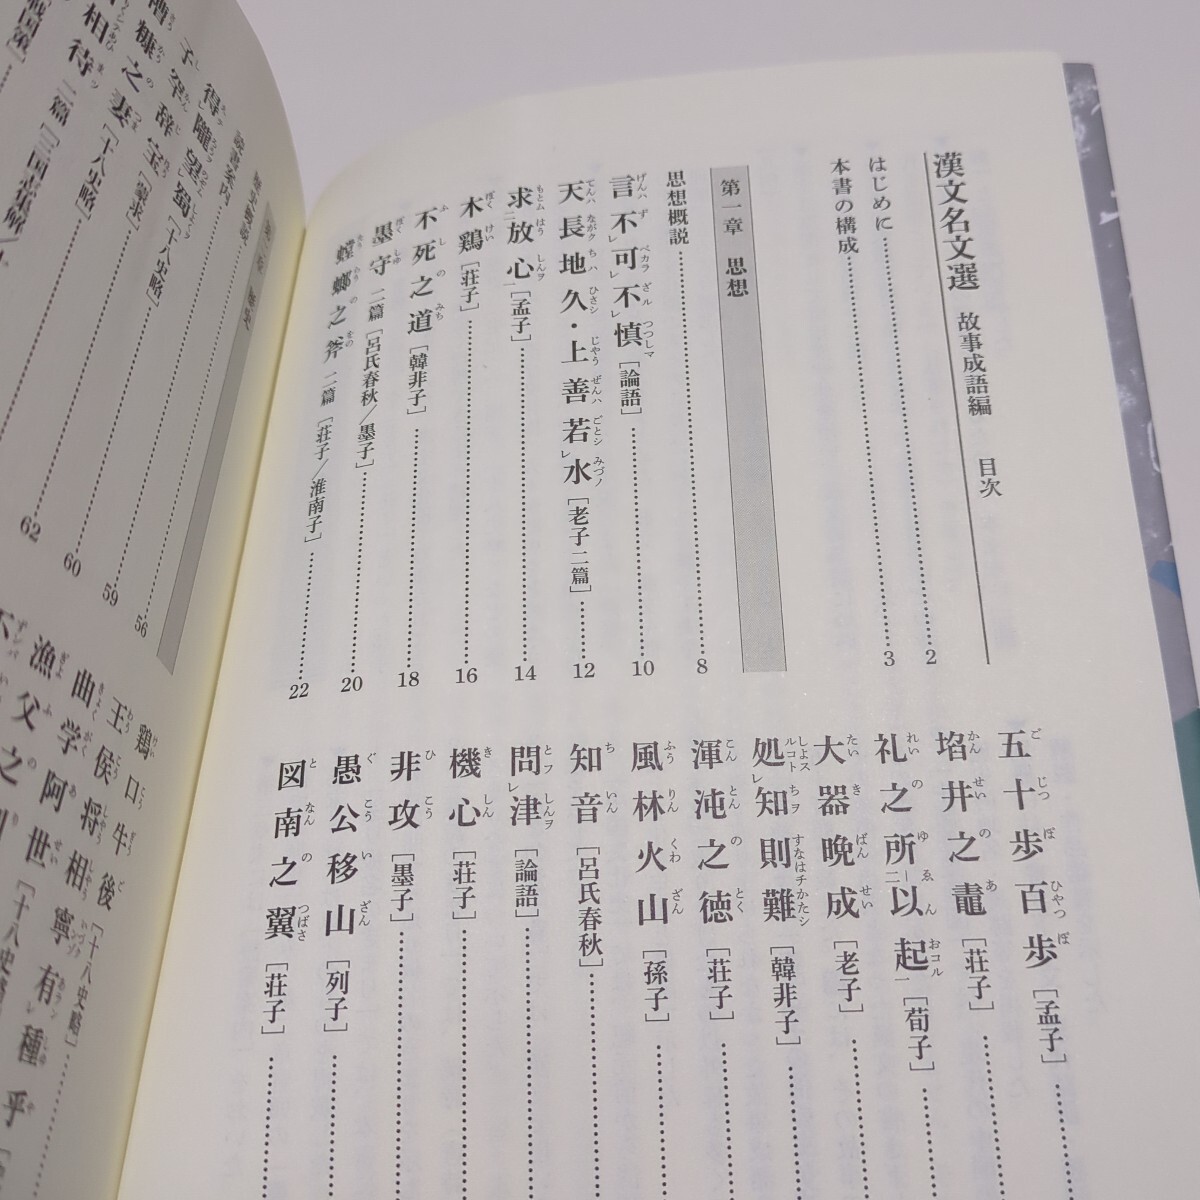 漢文名文選 故事成語編 目次
はじめに 2
本書の構成 3
第一章 思想
思想概説 8
言不可不慎［論語］ 10
天長地久・上善若水［老子二篇］ 12
求放心［孟子］ 14
木鶏［荘子］ 16
不死之道［韓非子］ 18
墨守 二篇［呂氏春秋／墨子］ 20
螳螂之斧 二篇［荘子／淮南子］ 22
五十歩百歩［孟子］
埳井之鼃［荘子］
礼之所以起［荀子］
大器晩成［老子］
処知則難［韓非子］
渾沌之徳［荘子］
風林火山［孫子］
知音［呂氏春秋］
問津［論語］
機心［荘子］
非攻［墨子］
愚公移山［列子］
図南之翼［荘子］
読書案内 56
得隴望蜀［十八史略］ 59
子罕辞宝［蒙求］ 60
糟糠之妻［十八史略］ 62
相待 二篇
鶏口牛後［十八史略］
王侯将相寧有種乎
曲学阿世［十八史略
漁父之利